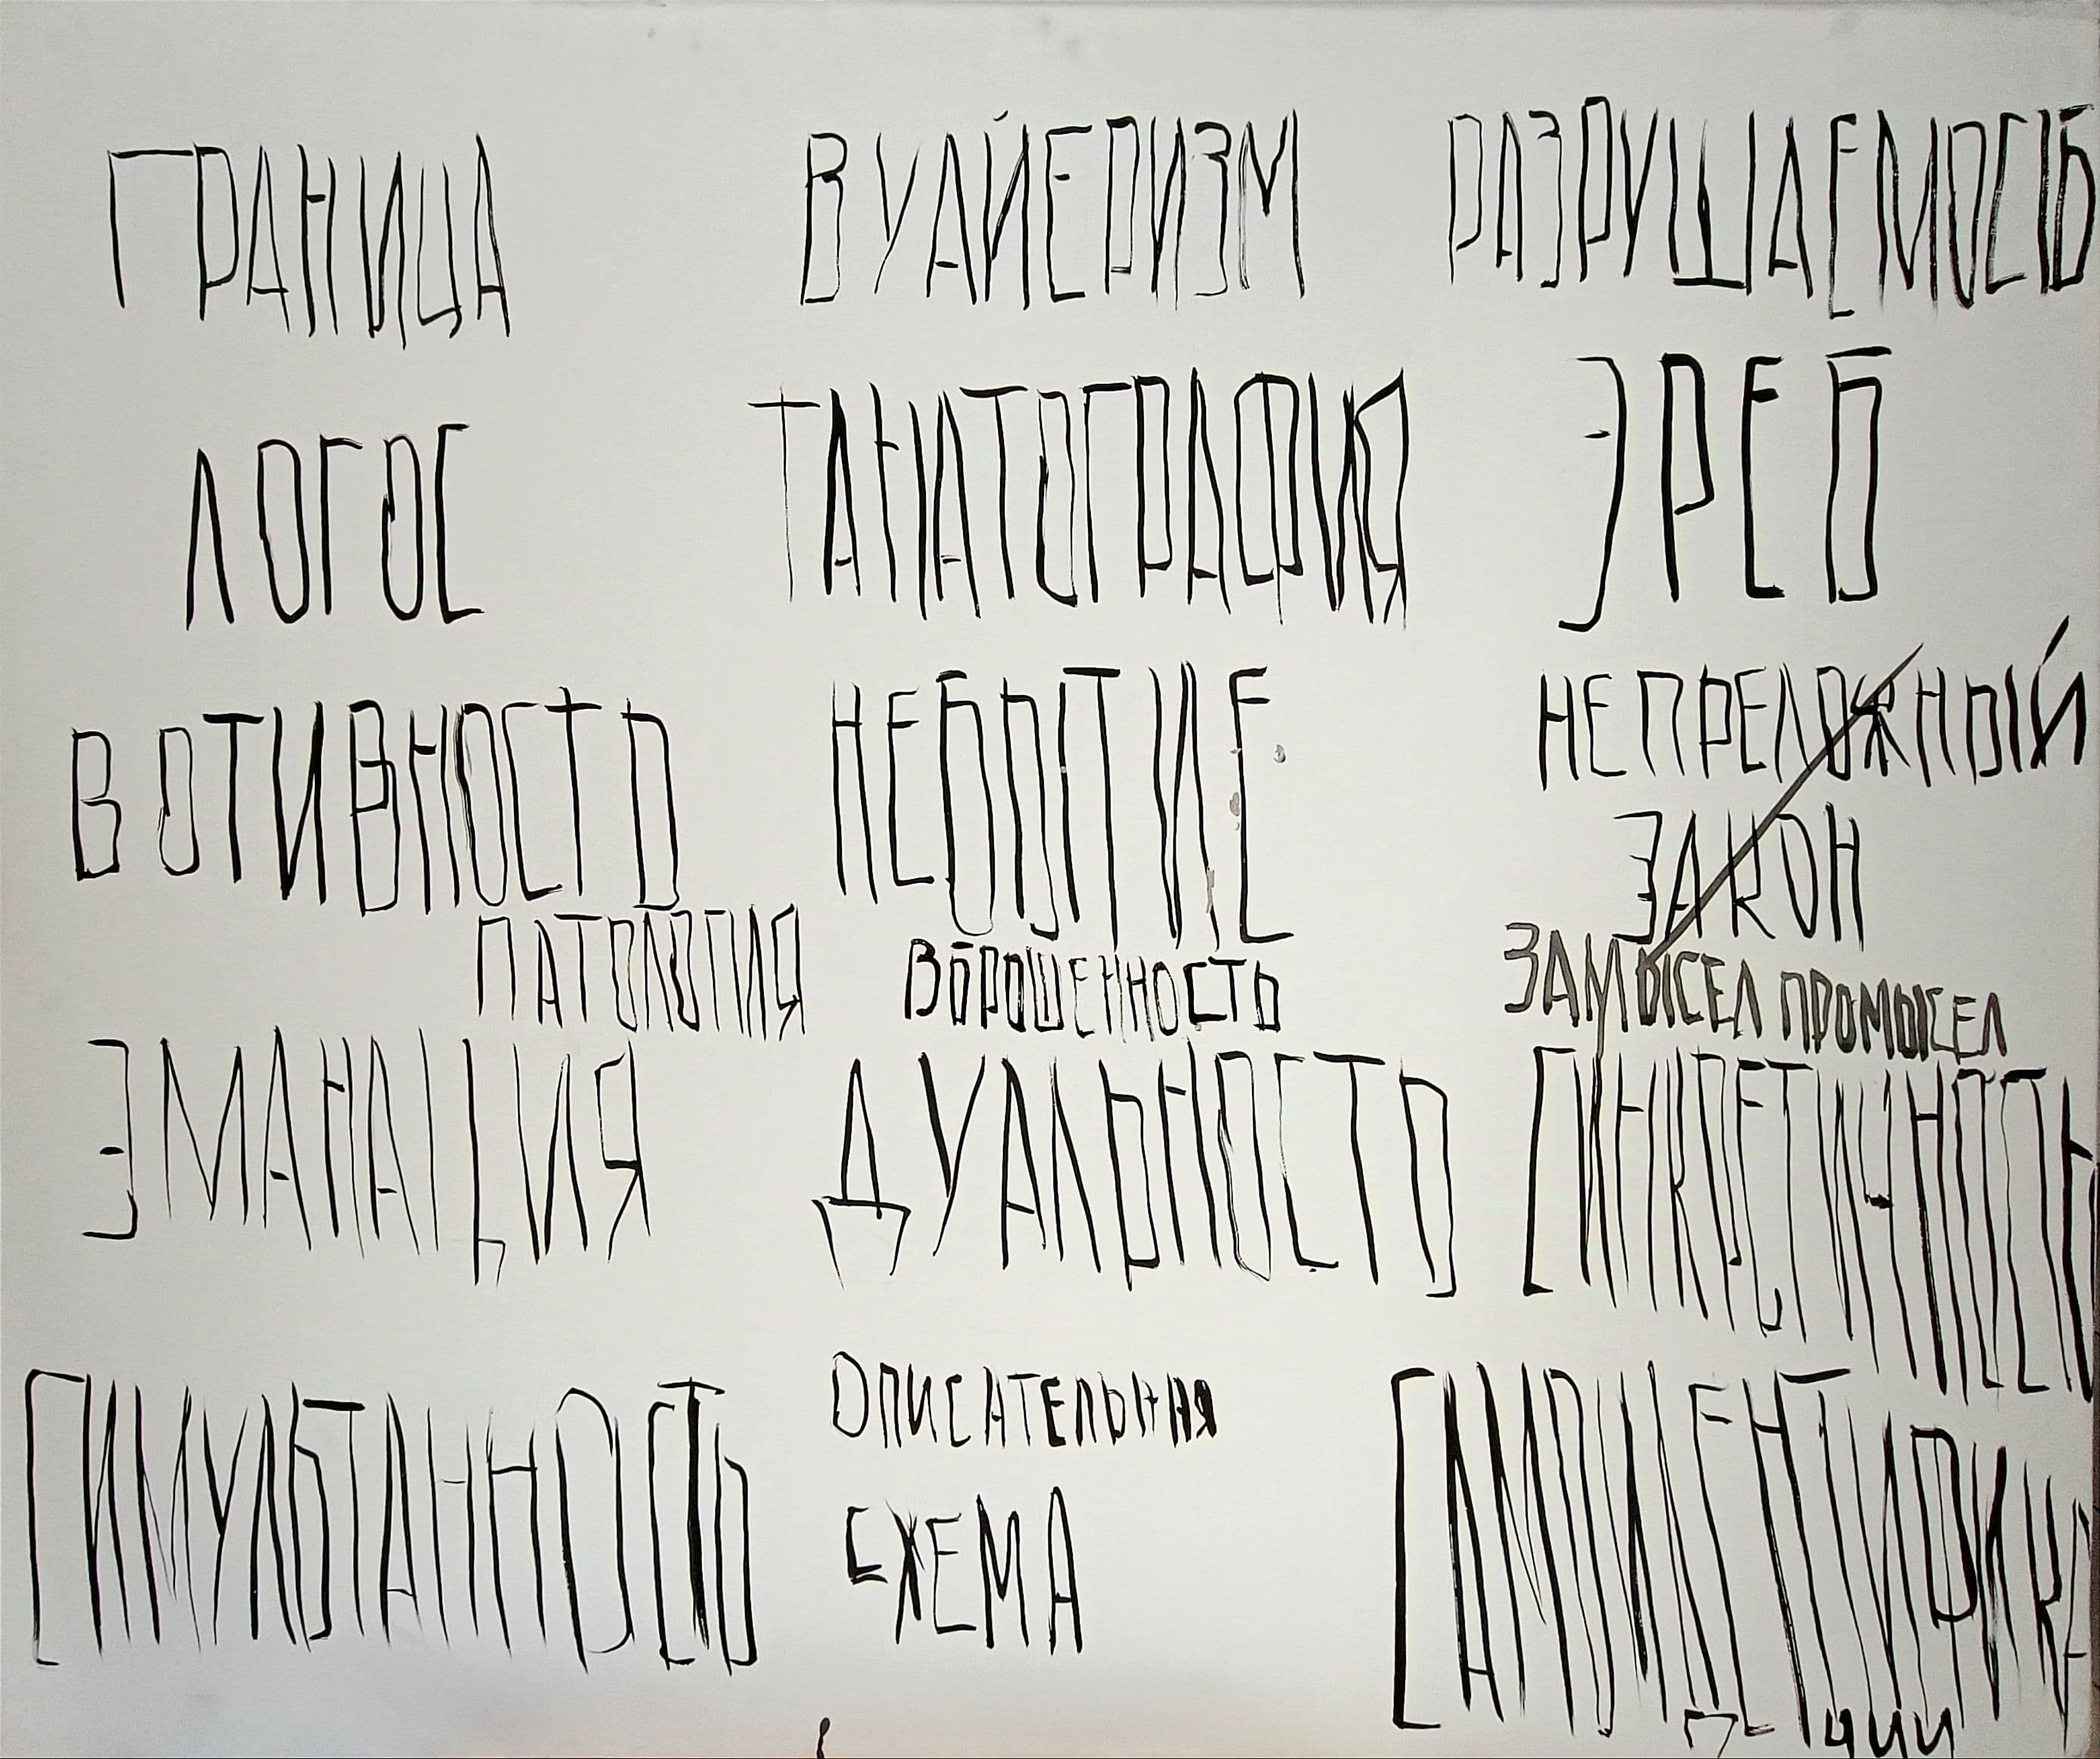 ГРАНИЦА ВУАЙЕРИЗМ РАЗРУШАЕМОСТЬ
ЛОГОС ТАНАТОГРАФИЯ ЭРЕБ
ВОТИВНОСТЬ НЕБЫТИЕ НЕПРЕЛОЖНЫЙ
ЗАКОН
ПАТОЛОГИЯ ВБРОШЕННОСТЬ ЗАМЫСЕЛ ПРОМЫСЕЛ
ЭМАНАЦИЯ ДУАЛЬНОСТЬ СИНКРЕТИЧНОСТЬ
СИМУЛЬТАННОСТЬ ОПИСАТЕЛЬНАЯ САМОИДЕНТИФИКА
СХЕМА
ЦИИ